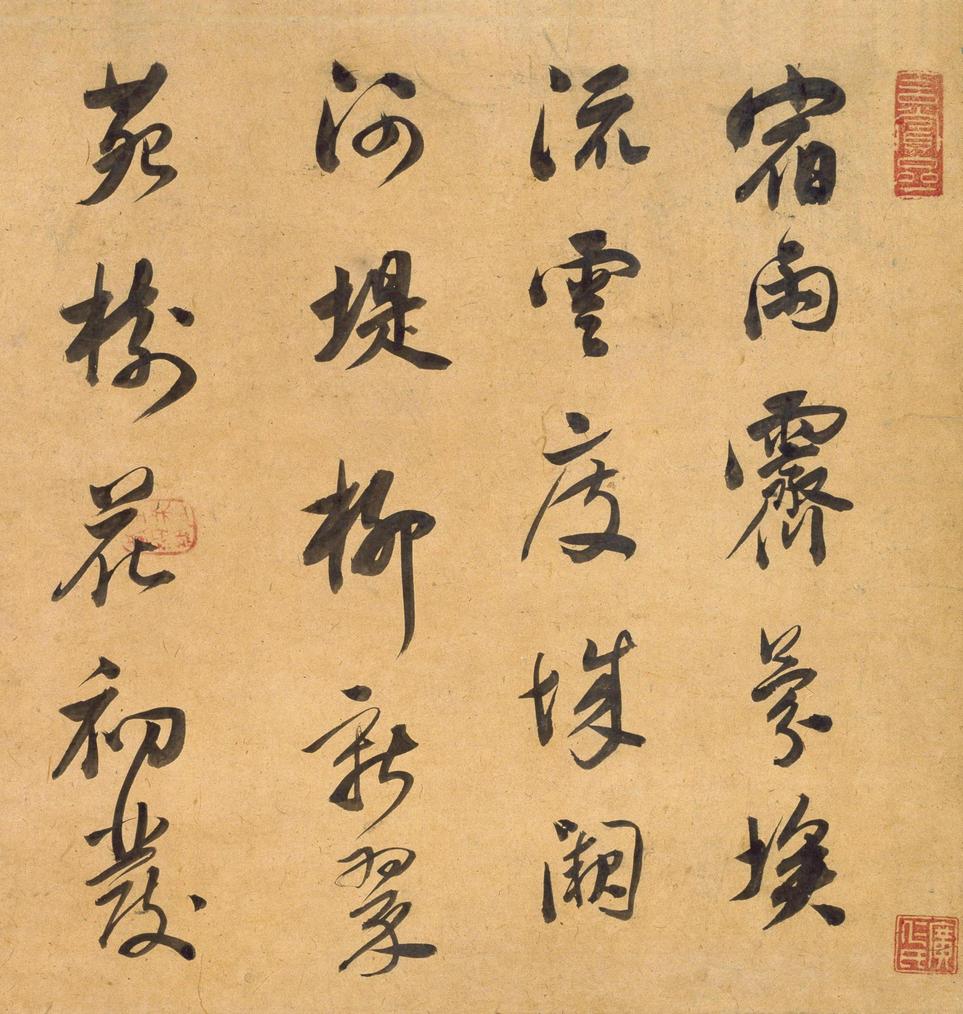 宿雨霽芬埃
流雲度城闕
河堤柳新翠
苑樹花初發